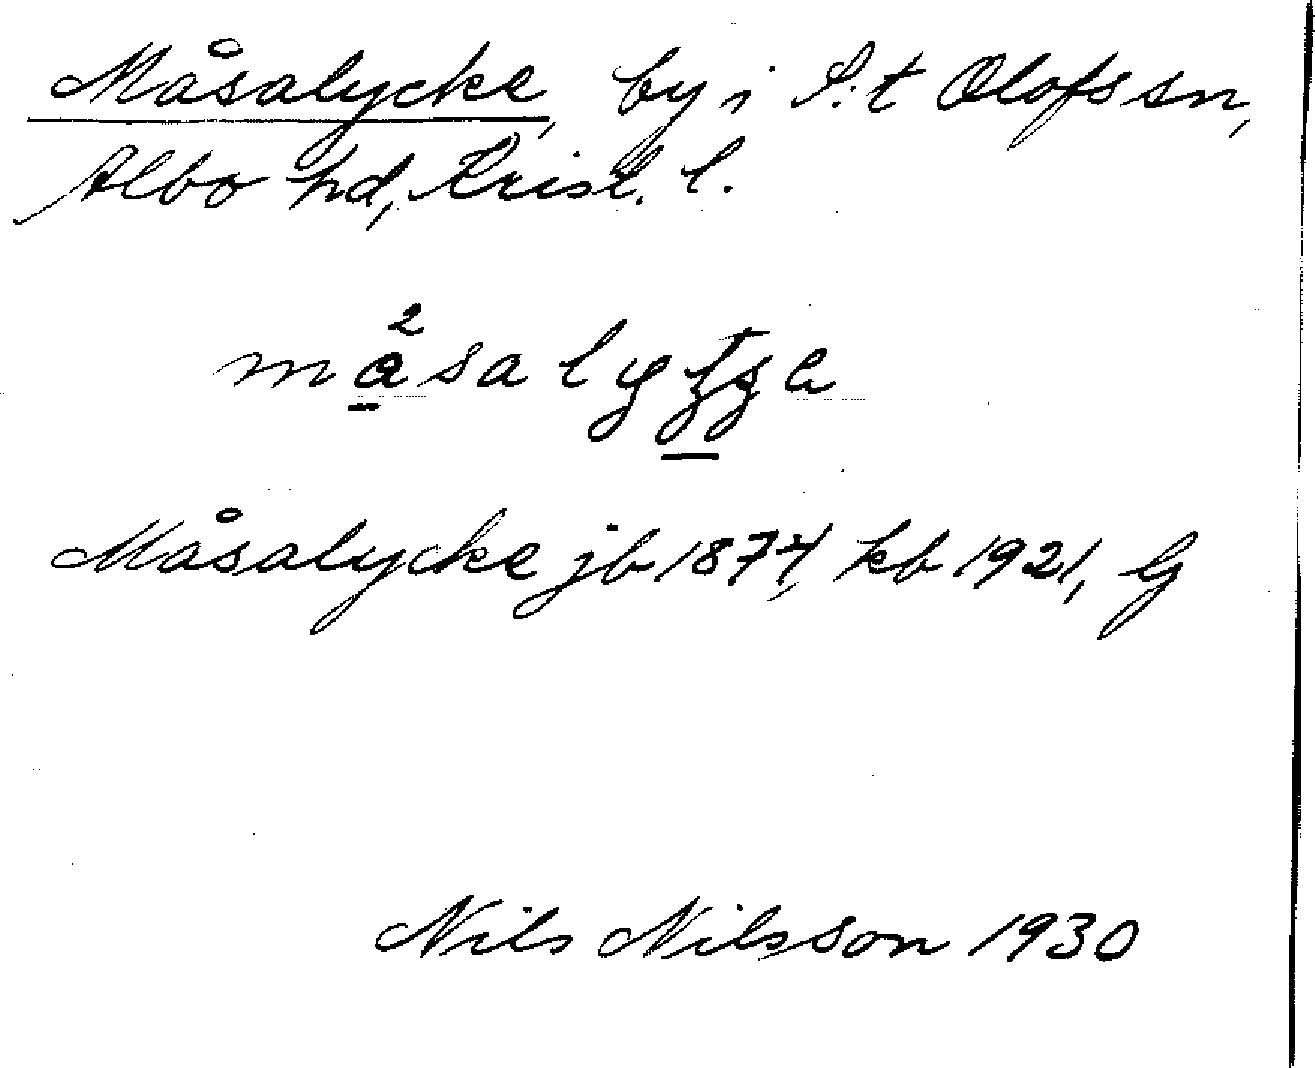 Måsalycke, by i S:t Olofs sn,
Albo hd, Krist. l.
Måsalycke jb 1874, kb 1921, G
Nils Nilsson 1930